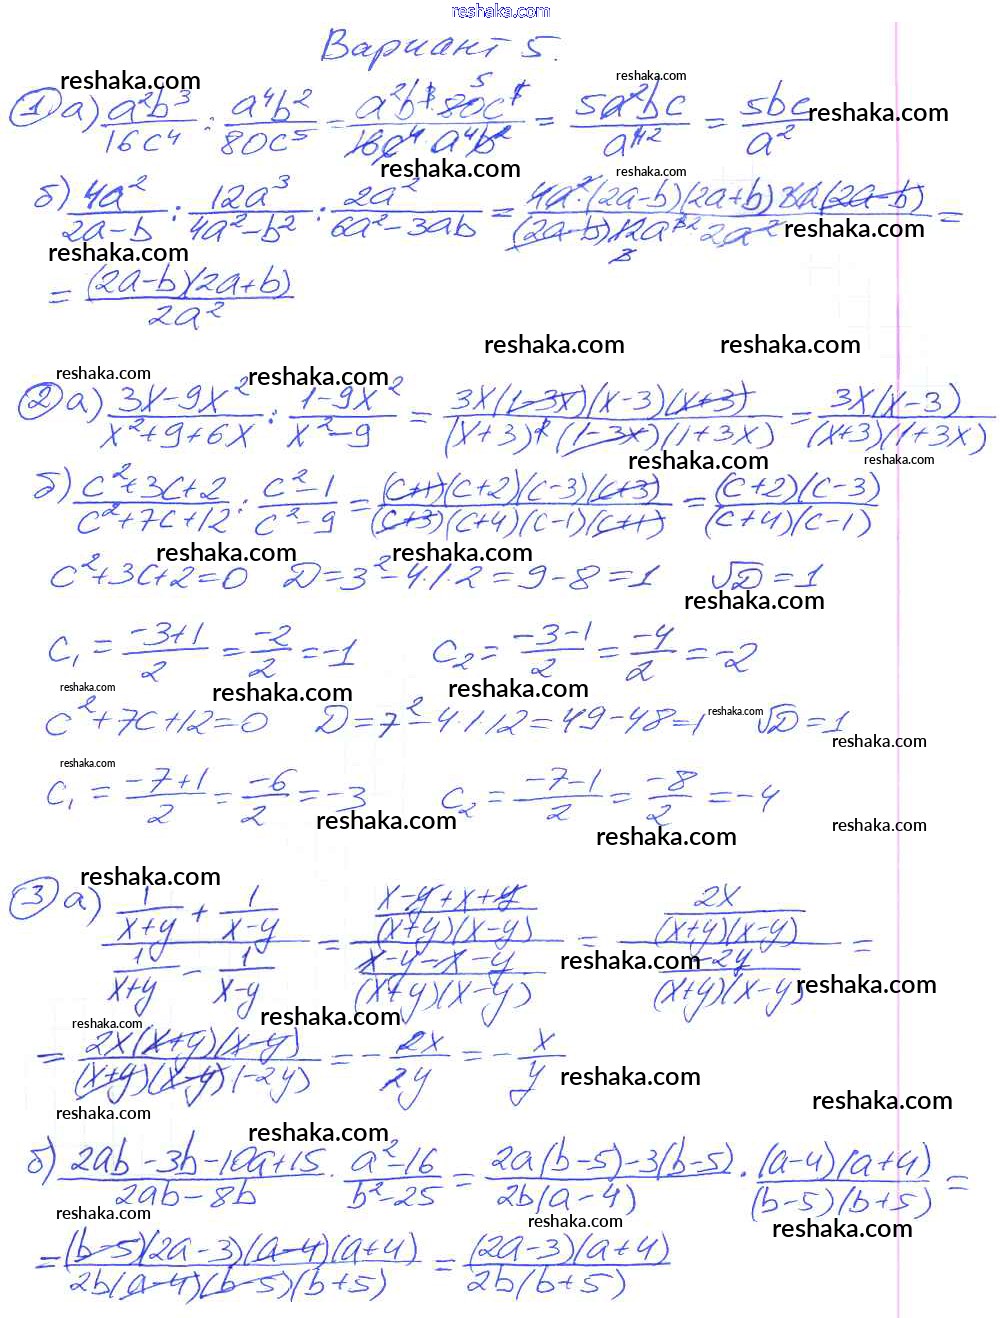 reshaka.com
Вариант 5.
reshaka.com reshaka.com
① а) a²b³/16c⁴ : a⁴b²/80c⁵ = a²b³·80c⁵/16c⁴·a⁴b² = 5a²bc/a⁴ = 5bc/a² reshaka.com
reshaka.com reshaka.com
б) 4a²/2a-b : 12a³/4a²-b² : 2a²/6a²-3ab = 4a²·(2a-b)(2a+b)3a(2a-b)/(2a-b)12a³·2a² =
reshaka.com reshaka.com
= (2a-b)(2a+b)/2a²
reshaka.com reshaka.com
reshaka.com reshaka.com
② а) 3x-9x²/x²+9+6x : 1-9x²/x²-9 = 3x(1-3x)(x-3)(x+3)/(x+3)²(1-3x)(1+3x) = 3x(x-3)/(x+3)(1+3x)
reshaka.com reshaka.com
б) c²+3c+2/c²+7c+12 : c²-1/c²-9 = (c+1)(c+2)(c-3)(c+3)/(c+3)(c+4)(c-1)(c+1) = (c+2)(c-3)/(c+4)(c-1)
reshaka.com reshaka.com
c²+3c+2=0 D=3²-4·1·2=9-8=1 √D=1
reshaka.com
c₁ = -3+1/2 = -2/2 = -1 c₂ = -3-1/2 = -4/2 = -2
reshaka.com reshaka.com reshaka.com
c²+7c+12=0 D=7²-4·1·12=49-48=1 reshaka.com √D=1
reshaka.com
reshaka.com
c₁ = -7+1/2 = -6/2 = -3 c₂ = -7-1/2 = -8/2 = -4
reshaka.com reshaka.com reshaka.com
reshaka.com
③ а) 1/x+y + 1/x-y / 1/x+y - 1/x-y = x-y+x+y/(x+y)(x-y) / x-y-x-y/(x+y)(x-y) = 2x/(x+y)(x-y) / -2y/(x+y)(x-y) =
reshaka.com reshaka.com
reshaka.com reshaka.com
= 2x(x+y)(x-y)/(x+y)(x-y)(-2y) = - 2x/2y = - x/y
reshaka.com reshaka.com
reshaka.com reshaka.com
б) 2ab-3b-10a+15/2ab-8b · a²-16/b²-25 = 2a(b-5)-3(b-5)/2b(a-4) · (a-4)(a+4)/(b-5)(b+5) =
reshaka.com reshaka.com reshaka.com
= (b-5)(2a-3)(a-4)(a+4)/2b(a-4)(b-5)(b+5) = (2a-3)(a+4)/2b(b+5)